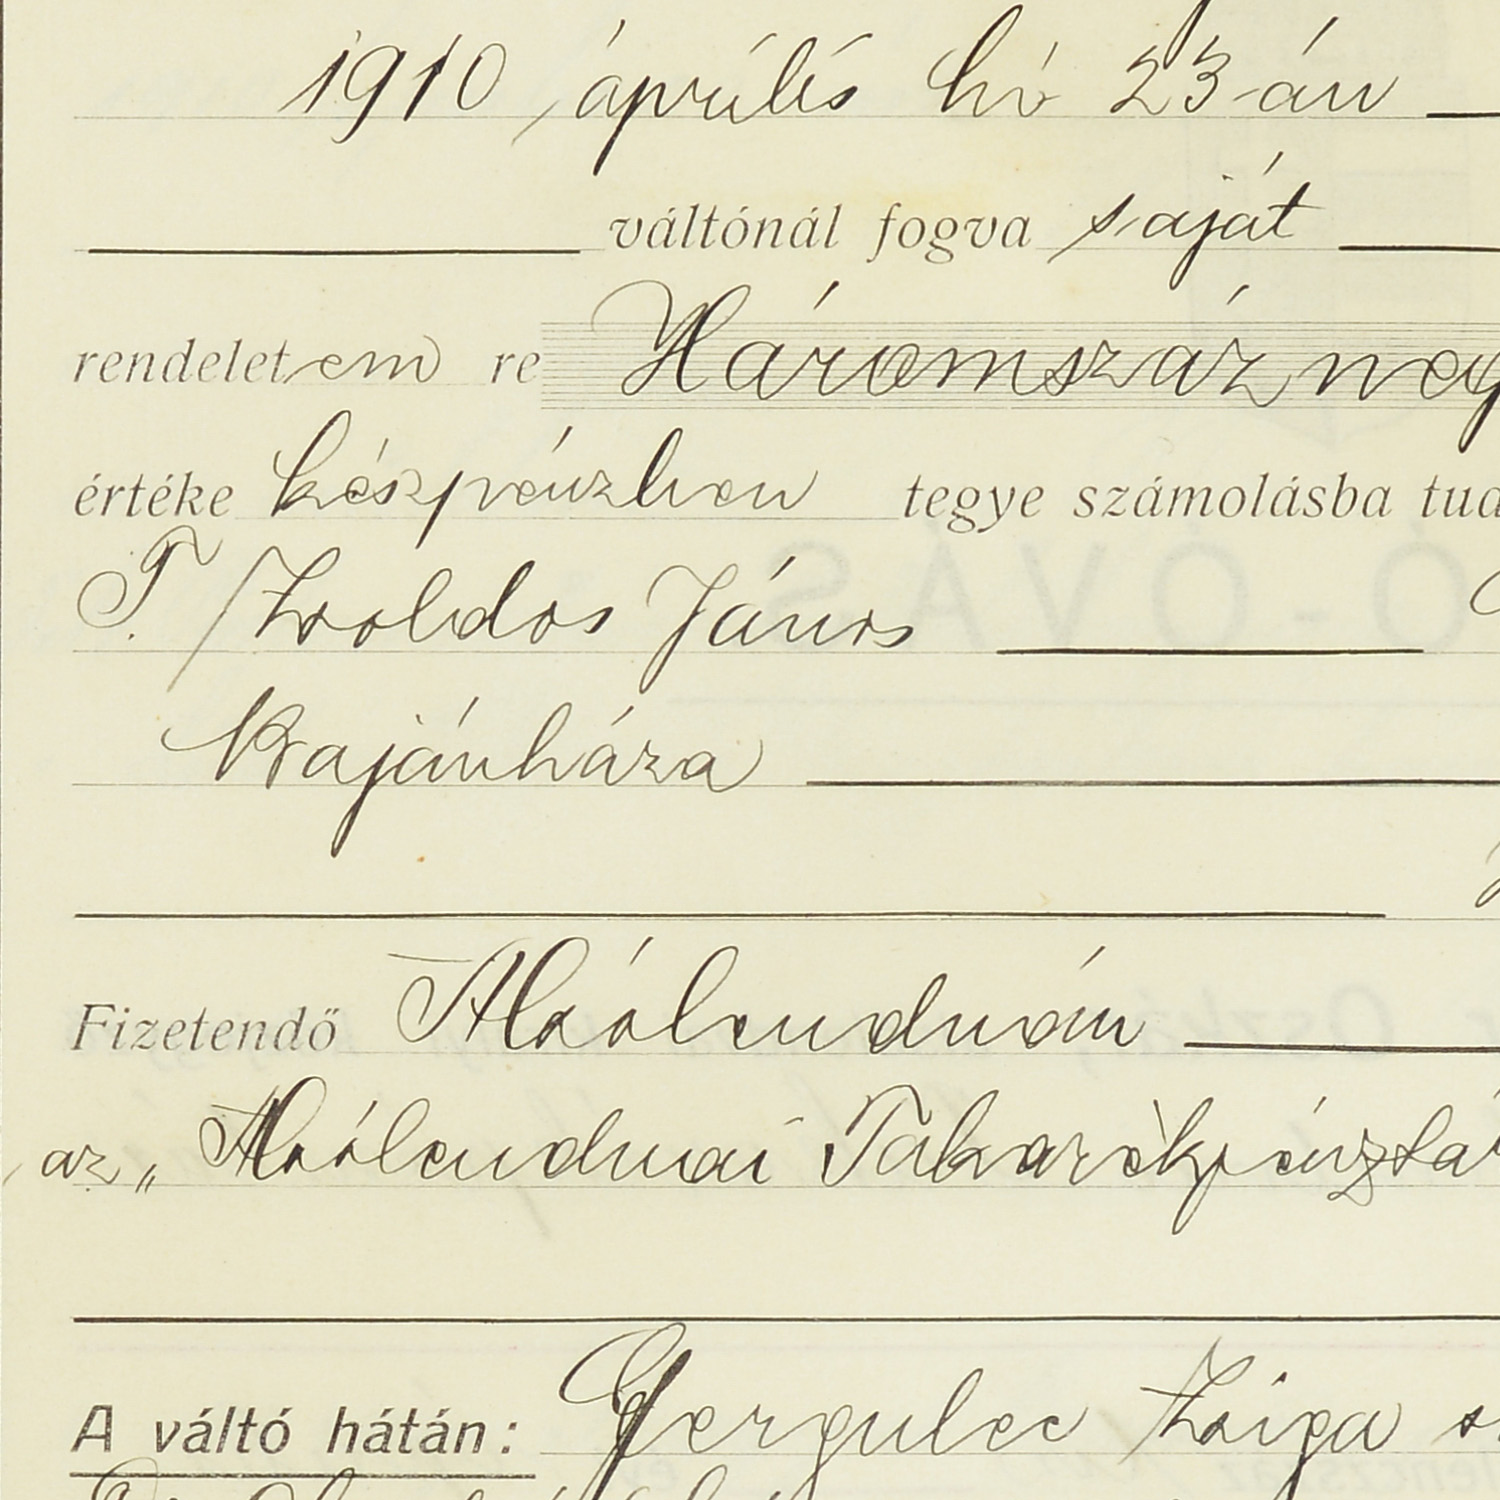 1910 április hó 23-án
váltónál fogva saját
rendeletem re Háromszáz neg
értéke készpénzben tegye számolásba tud
T. Zsoldos János
Trajánháza
Fizetendő Alsólendván
az „Alsólendvai Takarékpénztár
A váltó hátán: Gergulec Zsiga s